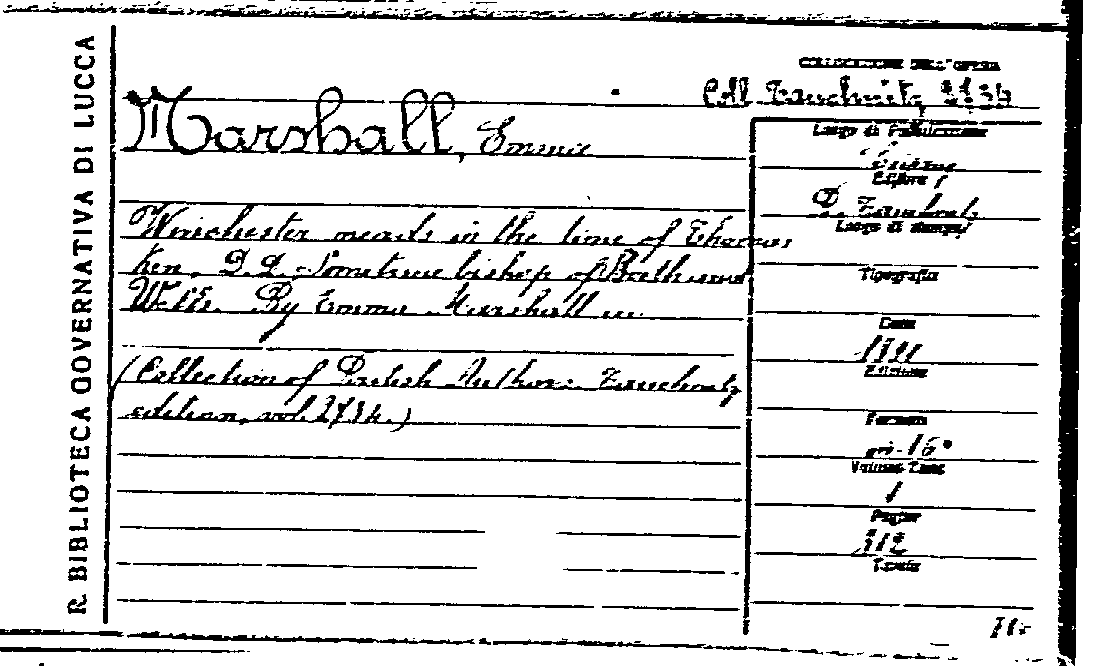 R. BIBLIOTECA GOVERNATIVA DI LUCCA
COLLOCAZIONE DELL'OPERA
Coll. Tauchnitz
Marshall, Emma
Winchester meads in the time of Thomas
Ken, D. D. Sometime bishop of Bath and
Wells. By Emma Marshall ...
(Collection of British Authors Tauchnitz
edition, vol. 2734.)
Luogo di Pubblicazione
Editore
B. Tauchnitz
Luogo di stampa
Tipografia
Data
Edizione
Formato
in-16°
Volume Tomo
1
Pagine
312
Tavole